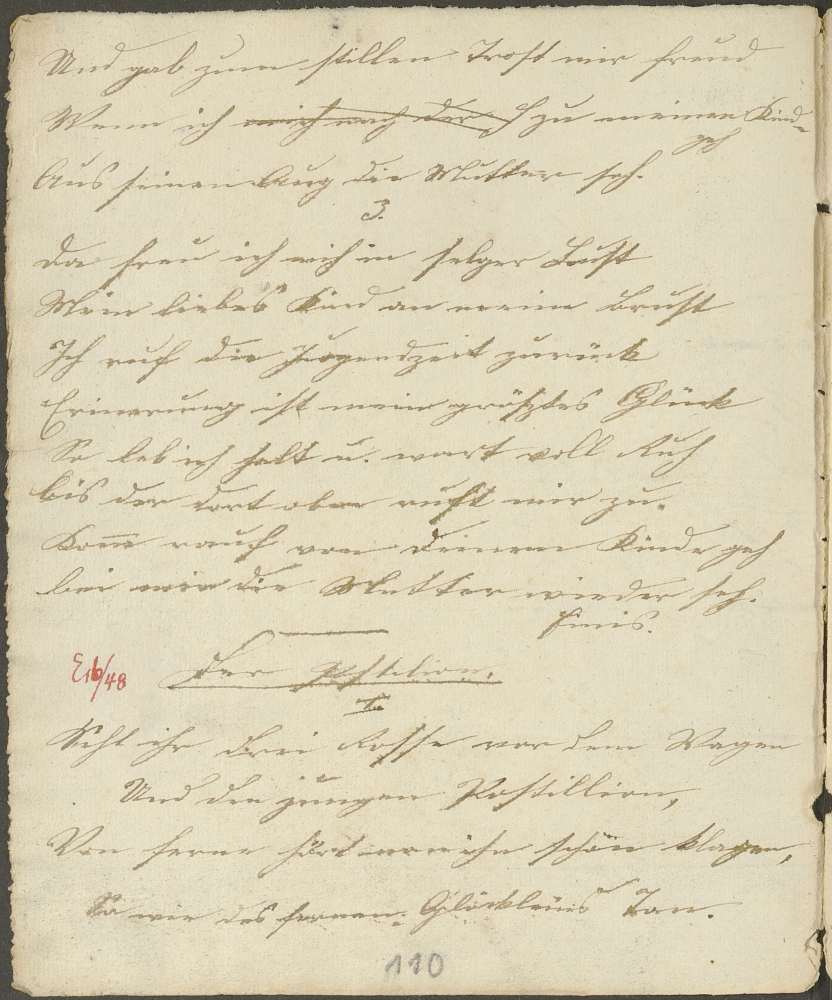 Und gab zum stillen Trost mir freud
Wenn ich mich nach der S zu meinen Kind-
geh
Aus seinen Aug die Mutter seh.
3.
Da freu ich mich in selger Lust
Mein liebes Kind an meine Brust
Ich ruf die Jugendzeit zurück
Erinerung ist mein größtes Glück
So leb ich halt u. wart voll Ruh
bis der dort oben ruft mir zu.
Kom̅ rauf von deinem Kinde geh
bei mir die Mutter wieder seh.
Finis.
E16/48 Der Postilion.
1.
Seht ihr drei Rosse vor dem Wagen
Und den jungen Postillion,
Von ferne hört man ihn schön klagen,
So wie des fernen Glöckleins Ton.
110